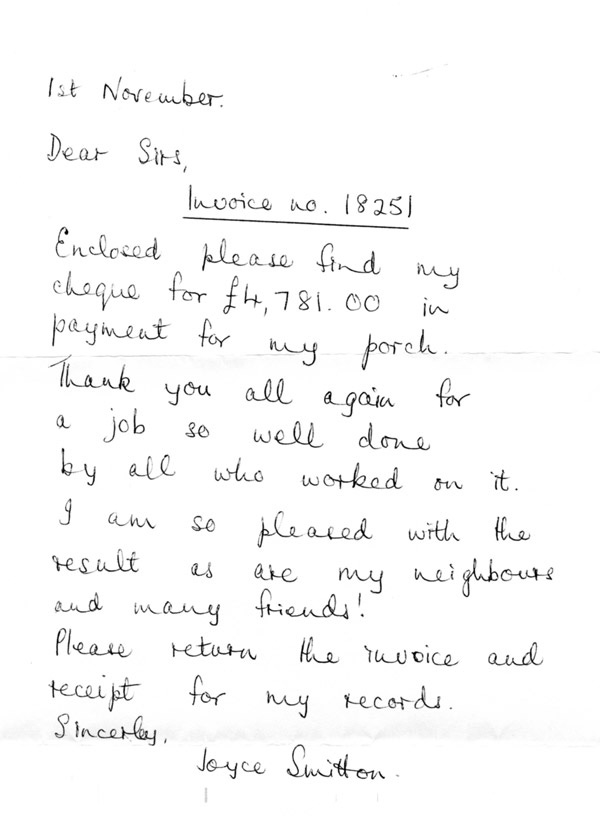 1st November.
Dear Sirs,
Invoice no. 18251
Enclosed please find my
cheque for £4,781.00 in
payment for my porch.
Thank you all again for
a job so well done
by all who worked on it.
I am so pleased with the
result as are my neighbours
and many friends!
Please return the invoice and
receipt for my records.
Sincerley,
Joyce Smitton.